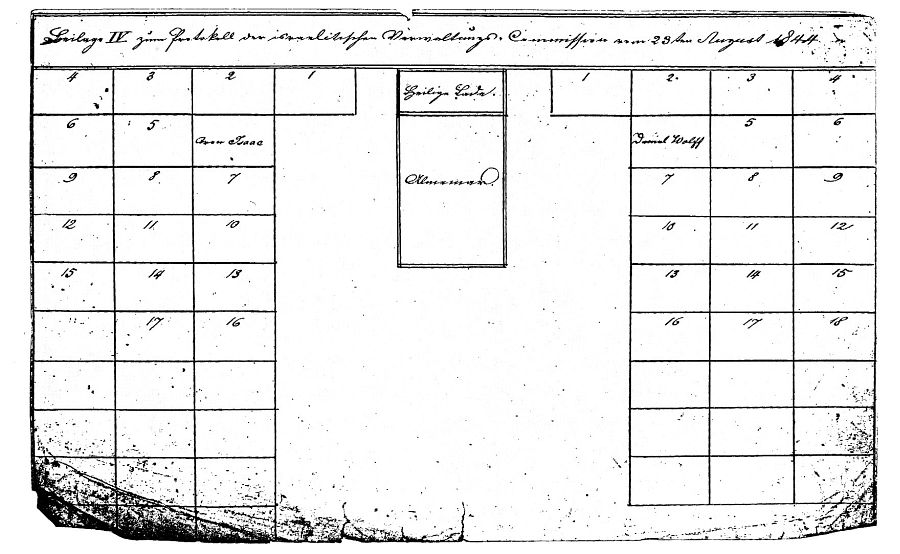 Beilage IV zum Protokoll der israelitischen Verwaltungs-Commission vom 23ten August 1844
4 3 2 1 Heilige Lade. 1 2. 3 4
6 5 5 6
Aron Isaac Daniel Wolff
Almemar.
9 8 7 7 8 9
12 11 10 10 11 12
15 14 13 13 14 15
17 16 16 17 18